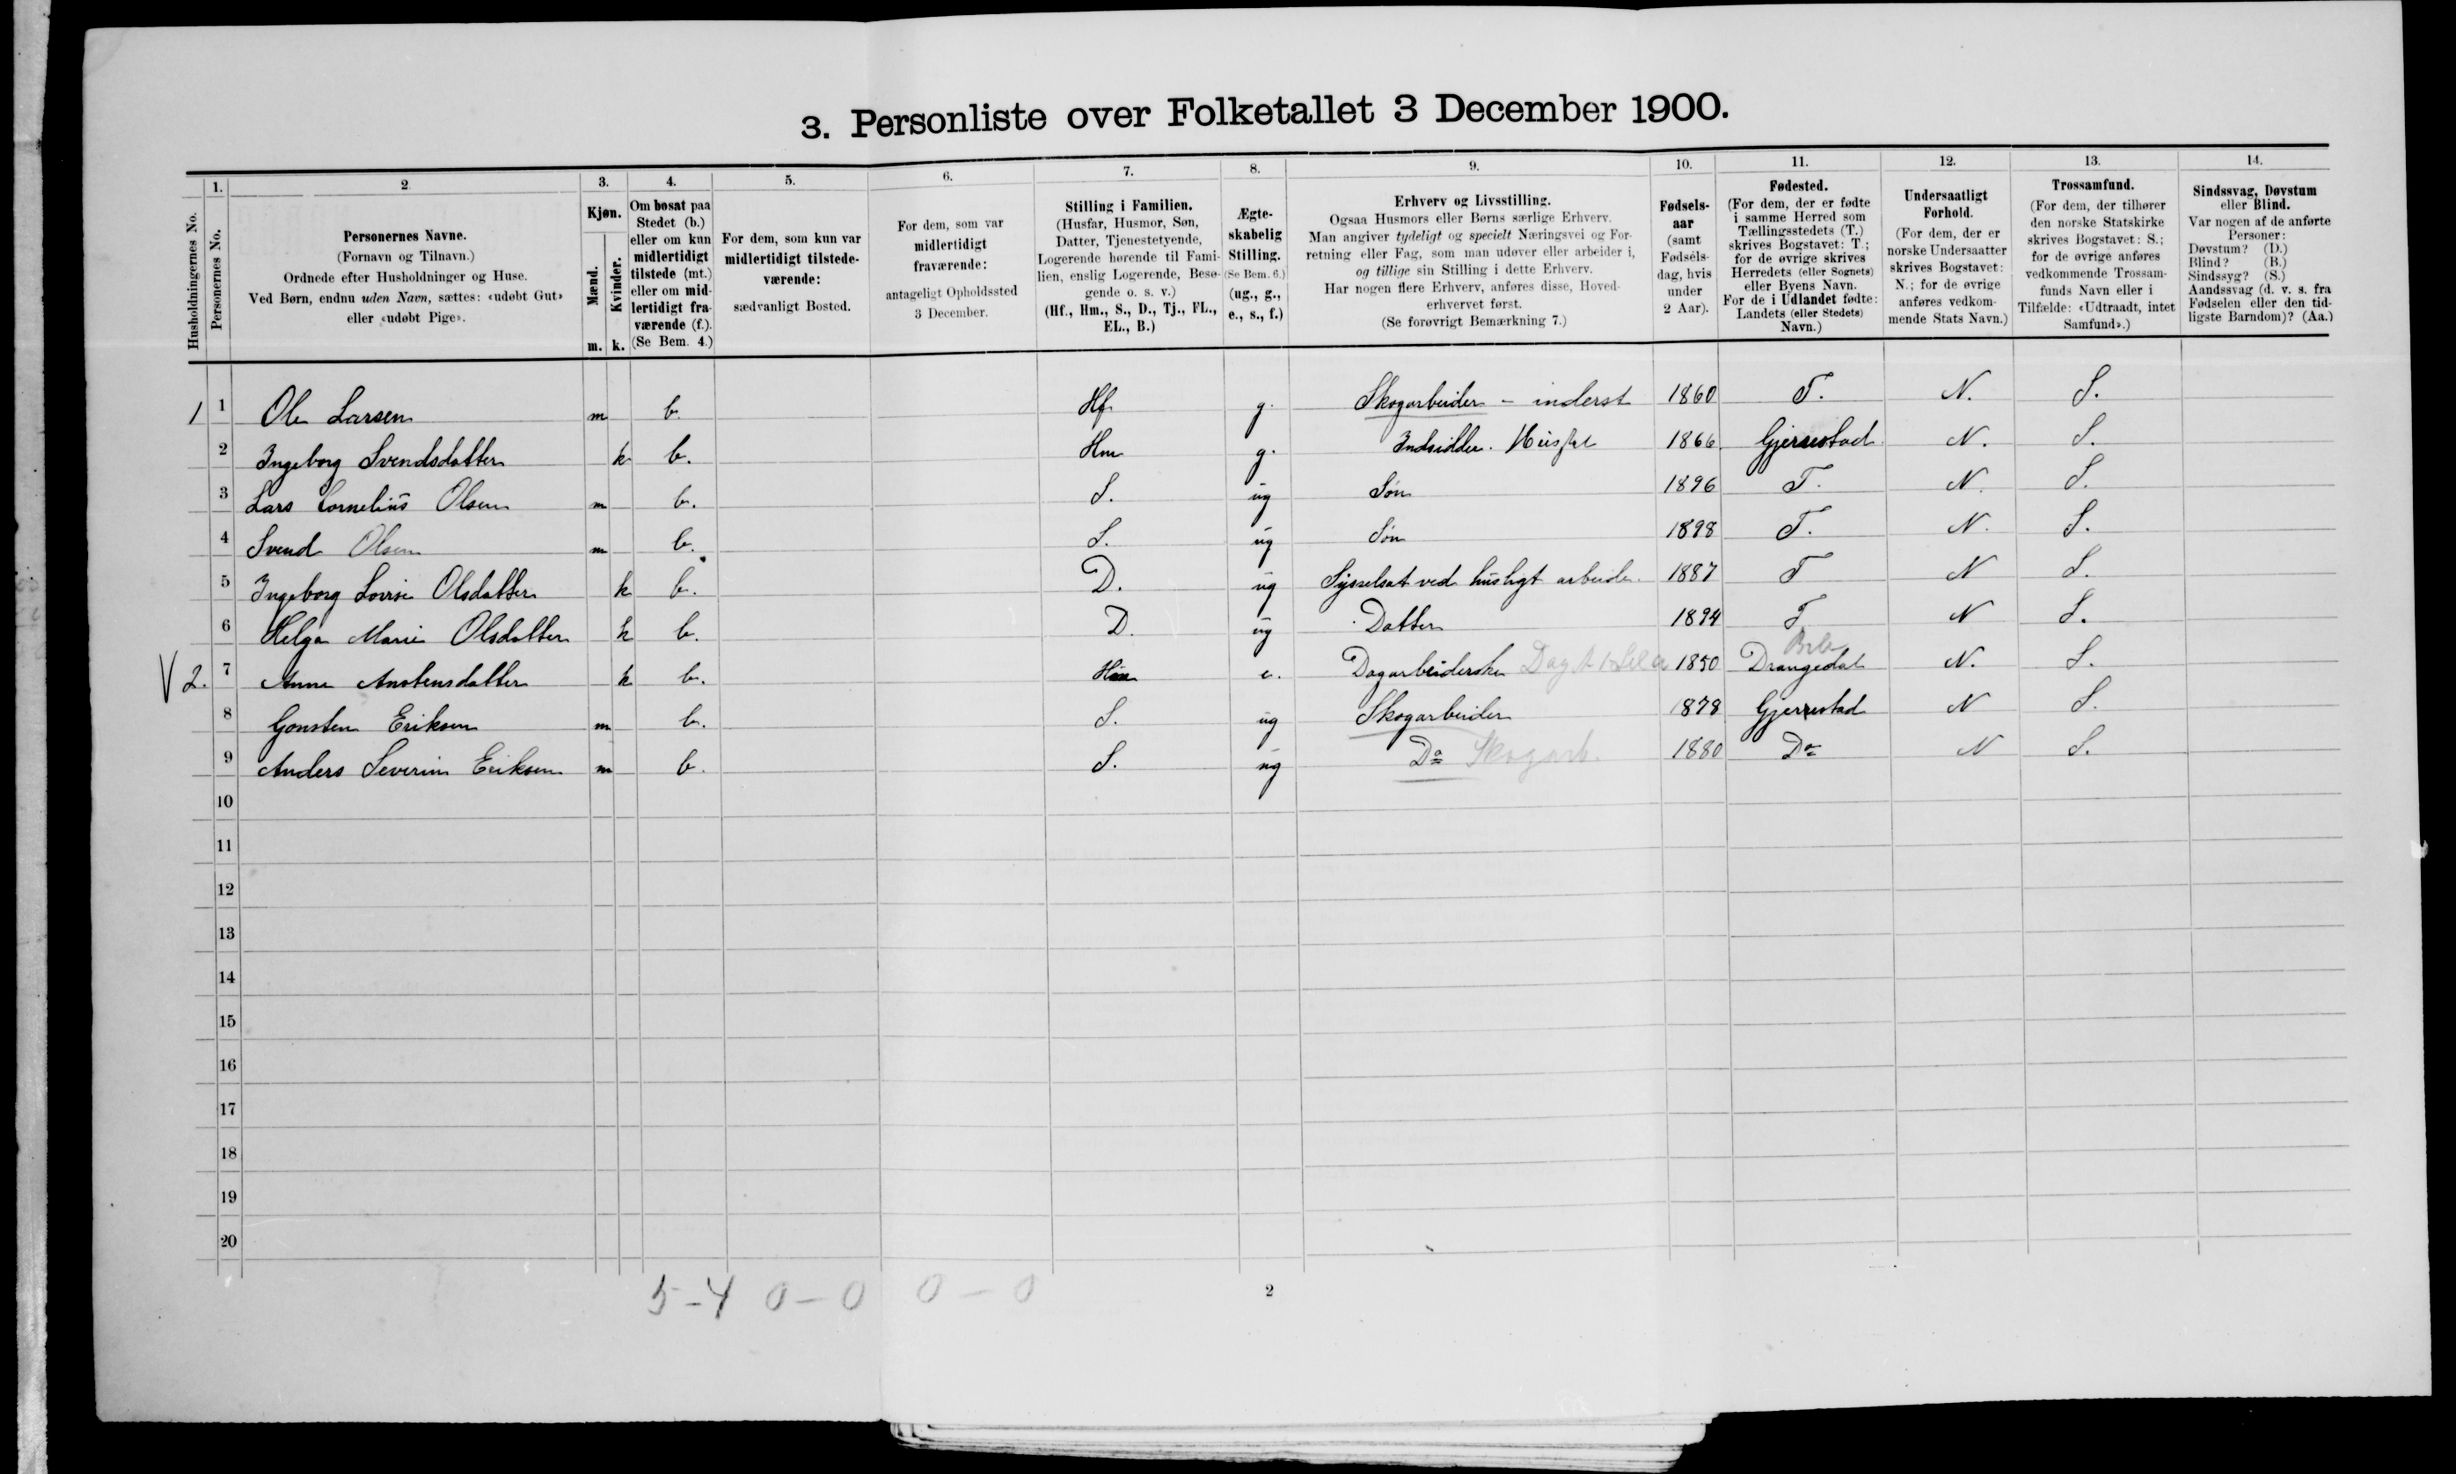 3. Personliste over Folketallet 3 December 1900.
1. 2 3. 4. 5. 6. 7. 8. 9. 10. 11. 12. 13. 14.
Husholdningernes No.
Personernes No.
Personernes Navne.
(Fornavn og Tilnavn.)
Ordnede efter Husholdninger og Huse.
Ved Børn, endnu uden Navn, sættes: «udøbt Gut»
eller «udøbt Pige».
Kjøn.
Mænd.
Kvinder.
m. k.
Om bosat paa
Stedet (b.)
eller om kun
midlertidigt
tilstede (mt.)
eller om mid-
lertidigt fra-
værende (f.).
(Se Bem. 4.)
For dem, som kun var
midlertidigt tilstede-
værende:
sædvanligt Bosted.
For dem, som var
midlertidigt
fraværende:
antageligt Opholdssted
3 December.
Stilling i Familien.
(Husfar, Husmor, Søn,
Datter, Tjenestetyende,
Logerende hørende til Fami-
lien, enslig Logerende, Besø-
gende o. s. v.)
(Hf., Hm., S., D., Tj., FL.,
EL., B.)
Ægte-
skabelig
Stilling.
(Se Bem. 6.)
(ug., g.,
e., s., f.)
Erhverv og Livsstilling.
Ogsaa Husmors eller Børns særlige Erhverv.
Man angiver tydeligt og specielt Næringsvei og For-
retning eller Fag, som man udøver eller arbeider i,
og tillige sin Stilling i dette Erhverv.
Har nogen flere Erhverv, anføres disse, Hoved-
erhvervet først.
(Se forøvrigt Bemærkning 7.)
Fødsels-
aar
(samt
Fødsels-
dag, hvis
under
2 Aar).
Fødested.
(For dem, der er fødte
i samme Herred som
Tællingsstedets (T.)
skrives Bogstavet: T.;
for de øvrige skrives
Herredets (eller Sognets)
eller Byens Navn.
For de i Udlandet fødte:
Landets (eller Stedets)
Navn.)
Undersaatligt
Forhold.
(For dem, der er
norske Undersaatter
skrives Bogstavet:
N.; for de øvrige
anføres vedkom-
mende Stats Navn.)
Trossamfund.
(For dem, der tilhører
den norske Statskirke
skrives Bogstavet: S.;
for de øvrige anføres
vedkommende Trossam-
funds Navn eller i
Tilfælde: «Udtraadt, intet
Samfund».)
Sindssvag, Døvstum
eller Blind.
Var nogen af de anførte
Personer:
Døvstum? (D.)
Blind? (B.)
Sindssyg? (S.)
Aandssvag (d. v. s. fra
Fødselen eller den tid-
ligste Barndom)? (Aa.)
1 1 Ole Larsen m b. Hf. g. Skogarbeider - inderst 1860 T. N. S.
2 Ingeborg Svendsdatter k b. Hm g. Indsidder. 1866. Gjerrestad N. S.
3 Lars Cornelius Olsen m b. S. ug Søn 1896 T. N. S.
4 Svend Olsen m b. S. ug Søn 1898 T. N. S.
5 Ingeborg Lovise Olsdatter k b. D. ug Sysselsat ved husligt arbeide. 1887 T N S.
6 Helga Marie Olsdatter k b. D. ug Datter 1894 T N S.
V 2. 7 Anne Anstensdatter k b. Hm e. Dagarbeiderske 1850 Drangedal N. S.
8 Gonsten Eriksen m b. S. ug Skogarbeider 1878 Gjerrestad N S.
9 Anders Severin Eriksen m b. S. ug Do Skogarb. 1880 Do N S.
10
11
12
13
14
15
16
17
18
19
20
5-4 0-0 0-0
2